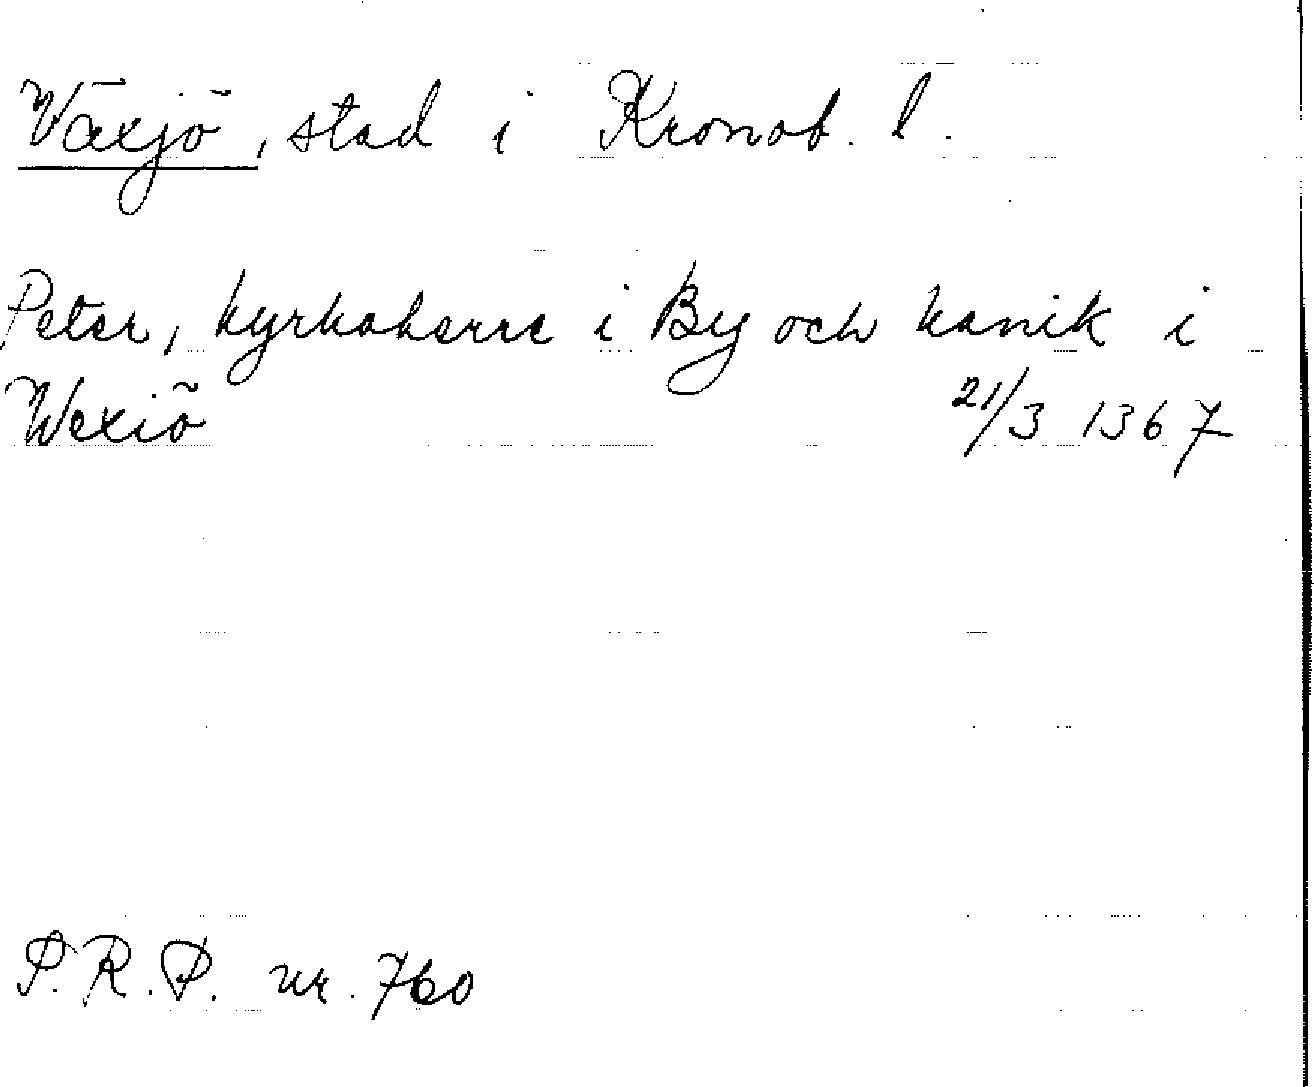 Växjö, stad i Kronob. l.
Peter, kyrkoherre i By och kanik i
Wexiö 21/3 1367
P.R.P. nr. 760